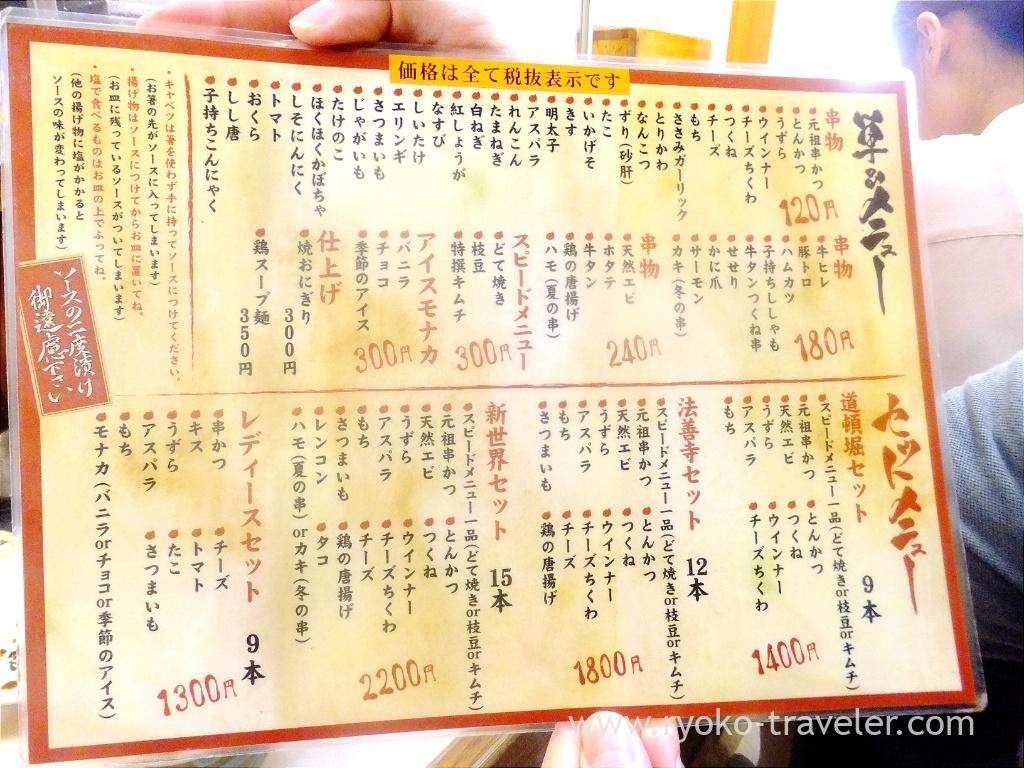 価格は全て税抜表示です
単品メニュー
串物
120円
元祖串かつ
とんかつ
うずら
ウインナー
チーズちくわ
つくね
チーズ
もち
ささみガーリック
とりかわ
なんこつ
ずり(砂肝)
たこ
いかげそ
きす
明太子
アスパラ
れんこん
たまねぎ
白ねぎ
紅しょうが
なすび
しいたけ
エリンギ
さつまいも
じゃがいも
たけのこ
ほくほくかぼちゃ
しそにんにく
トマト
おくら
しし唐
子持ちこんにゃく
串物
180円
牛ヒレ
豚トロ
ハムカツ
子持ちししゃも
牛タンつくね串
せせり
かに爪
サーモン
カキ(冬の串)
串物
240円
天然エビ
ホタテ
牛タン
鶏の唐揚げ
ハモ(夏の串)
スピードメニュー
300円
どて焼き
枝豆
特撰キムチ
アイスモナカ
300円
バニラ
チョコ
季節のアイス
仕上げ
焼おにぎり 300円
鶏スープ麺 350円
・キャベツは箸を使わず手に持ってソースにつけてください。
(お箸の先がソースに入ってしまいます)
・揚げ物はソースにつけてからお皿に置いてね。
(お皿に残っているソースがついてしまいます)
・塩で食べるものはお皿の上でふってね。
(他の揚げ物に塩がかかると
ソースの味が変わってしまいます)
ソースの二度漬け
御遠慮下さい
セットメニュー
道頓堀セット 9本
1400円
スピードメニュー一品(どて焼きor枝豆orキムチ)
元祖串かつ
天然エビ
うずら
アスパラ
もち
とんかつ
つくね
ウインナー
チーズちくわ
法善寺セット 12本
1800円
スピードメニュー一品(どて焼きor枝豆orキムチ)
元祖串かつ
天然エビ
うずら
アスパラ
もち
さつまいも
とんかつ
つくね
ウインナー
チーズちくわ
チーズ
鶏の唐揚げ
新世界セット 15本
2200円
スピードメニュー一品(どて焼きor枝豆orキムチ)
元祖串かつ
天然エビ
うずら
アスパラ
もち
さつまいも
レンコン
ハモ(夏の串)orカキ(冬の串)
とんかつ
つくね
ウインナー
チーズちくわ
チーズ
鶏の唐揚げ
タコ
レディースセット 9本
1300円
串かつ
キス
うずら
アスパラ
もち
モナカ(バニラorチョコor季節のアイス)
チーズ
トマト
たこ
さつまいも
www.ryoko-traveler.com